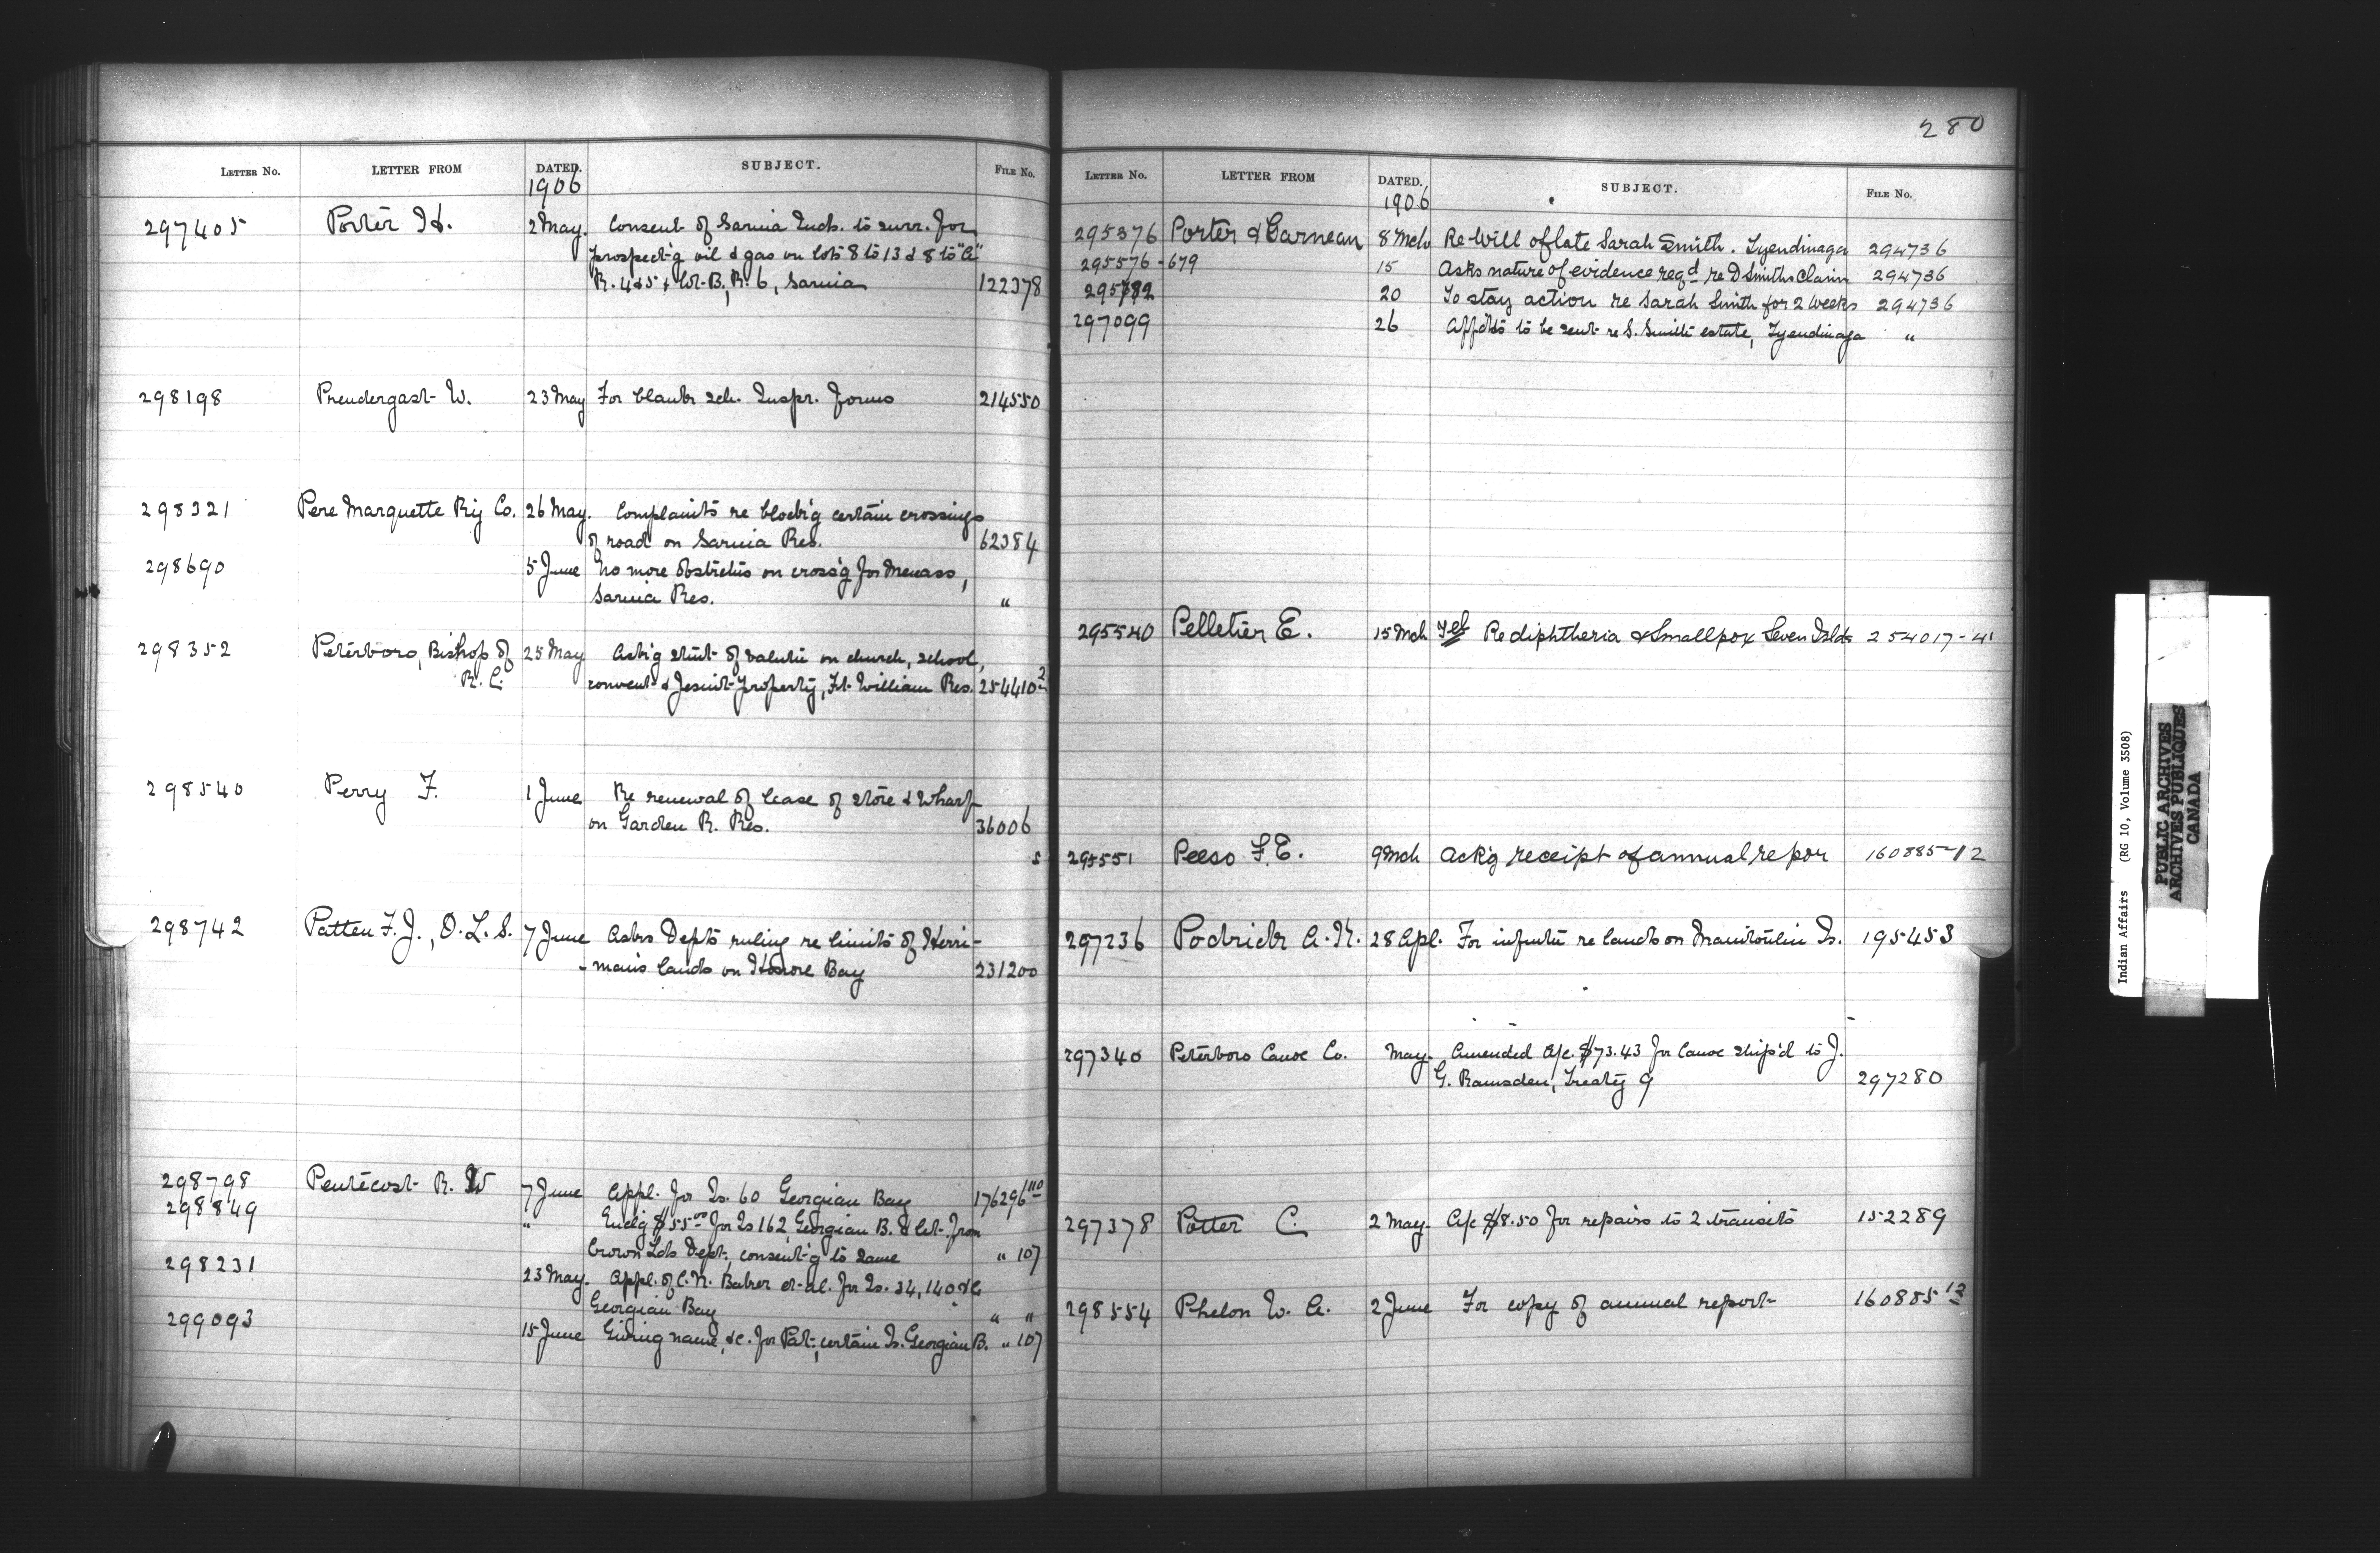 LETTER NO. LETTER FROM DATED. SUBJECT. FILE NO.
1906
297405 Porter H. 2 May. Consent of Sarnia Inds. to surr. for
prospect'g oil & gas on lots 8 to 13 & 8 to "C"
R. 4&5 & lot B, R. 6, Sarnia 122378
298198 Prendergast W. 23 May For blank sch. Inspr. forms 214550
298321 Pere Marquette Ry Co. 26 May. Complaints re block'g certain crossings
of road on Sarnia Res. 62384
298690 5 June No more obstrctns on cross'g for Menass,
Sarnia Res. "
298352 Peterboro, Bishop of 25 May Ask'g stmt of valutn on church, school,
R. C. convent & Jesuit property, Ft. William Res. 254410 2
298540 Perry F. 1 June Re renewal of lease of store & wharf
on Garden R. Res. 36006
298742 Patten F. J., O. L. S. 7 June Asks Dept's ruling re limits of Herri-
-man's lands on Honore Bay 231200
298798 Pentecost R. W 7 June Appl. for Is. 60 Georgian Bay 176296 110
298849 " Enclg $55.00 for Is 162, Georgian B. & let. from
Crown Lds Dept, consent'g to same " 107
298231 23 May. Appl. of C. N. Baker et al. for Is. 34, 140 &c
Georgian Bay " "
299093 15 June Giving name, &c. for Pat; certain Is. Georgian B. " 107
280
LETTER NO. LETTER FROM DATED. SUBJECT. FILE NO.
1906
295376 Porter & Carnean 8 Mch Re Will of late Sarah Smith. Tyendinaga 294736
295576-679 15 Asks nature of evidence reqd re D Smiths Claim 294736
295782 20 To stay action re Sarah Smith for 2 weeks 294736
297099 26 Affdts to be sent re S. Smith estate, Tyendinaga "
295540 Pelletier E. 15 Mch Tel Re diphtheria & Smallpox Seven Islds 254017-41
295551 Peeso F. E. 9 Mch Ack'g receipt of annual repor 160885-12
297236 Podrick A. N. 28 Apl. For infmtn re lands on Manitoulin Is. 195453
297340 Peterboro Canoe Co. May. Amended a/c. $73.43 for Canoe ship'd to J.
G. Ramsden, Treaty 9 297280
297378 Potter C. 2 May. A/c $8.50 for repairs to 2 transits 152289
298554 Phelon W. A. 2 June For copy of annual report 160885 12
Indian Affairs (RG 10, Volume 3508)
PUBLIC ARCHIVES
ARCHIVES PUBLIQUES
CANADA